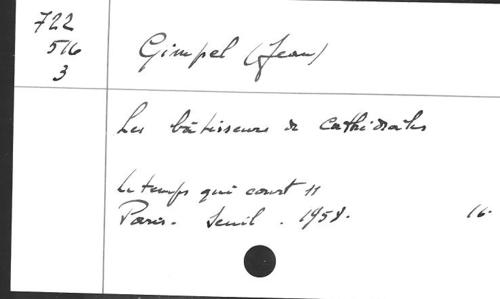 722
516
3
Gimpel (Jean)
Les bâtisseurs de cathédrales
Le temps qui court 11
Paris. Seuil. 1958.
16.